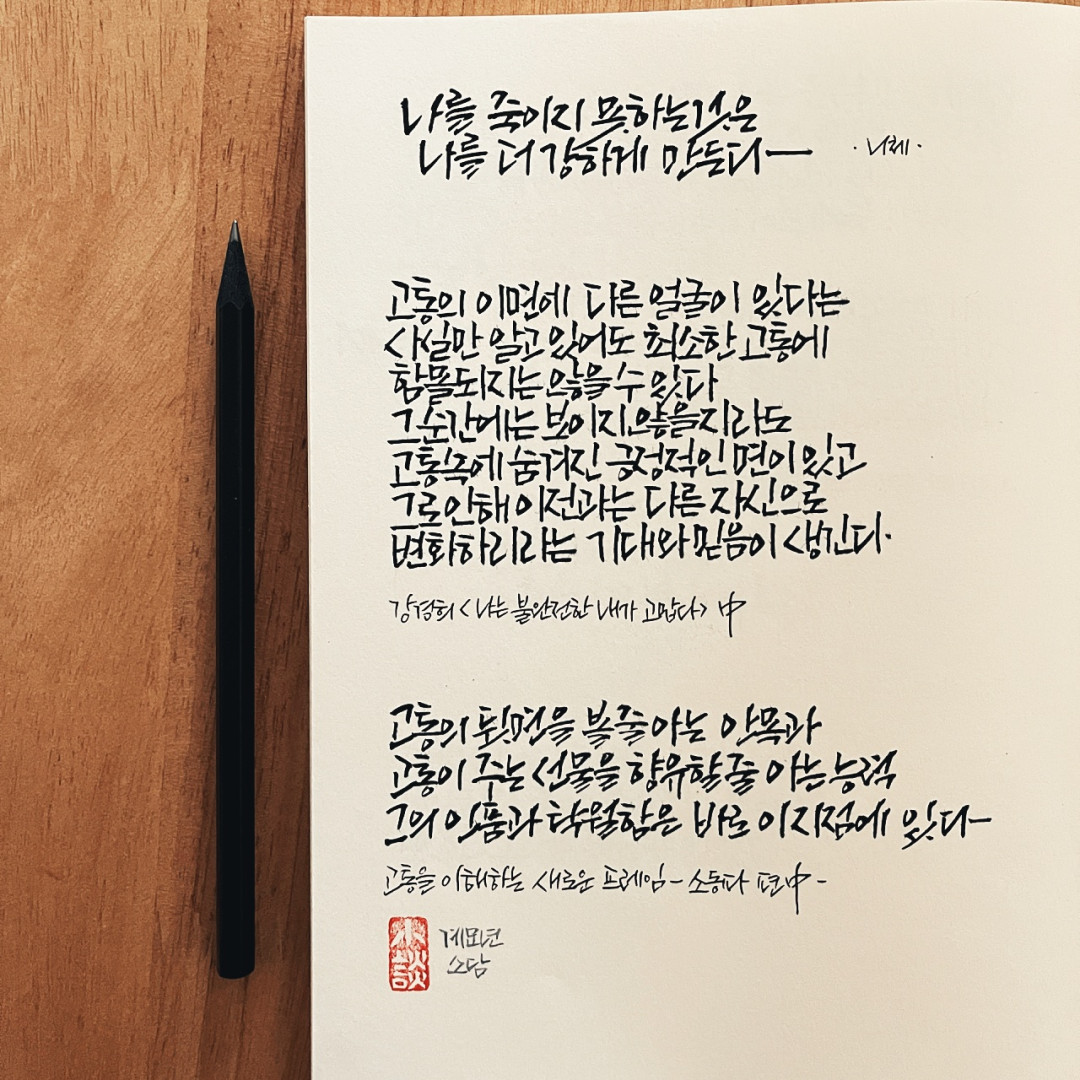 나를 죽이지 못하는것은
나를 더 강하게 만든다ㅡ
· 니체 ·
고통의 이면에 다른 얼굴이 있다는
사실만 알고 있어도 최소한 고통에
함몰되지는 않을 수 있다
그순간에는 보이지 않을지라도
고통속에 숨겨진 긍정적인 면이 있고
그로인해 이전과는 다른 자신으로
변화하리라는 기대와 믿음이 생긴다.
강경희 <나는 불완전한 내가 고맙다> 中
고통의 뒷면을 볼줄아는 안목과
고통이 주는 선물을 향유할 줄 아는 능력
그의 인품과 탁월함은 바로 이 지점에 있다ㅡ
고통을 이해하는 새로운 프레임 - 소동파 편 中 -
계묘년
소담